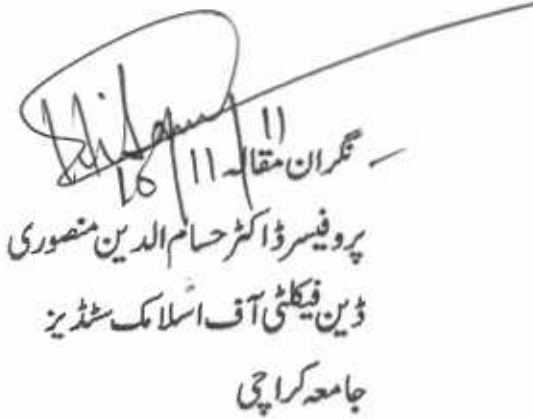 16/11/11
نگران مقالہ
پروفیسر ڈاکٹر حسام الدین منصوری
ڈین فیکلٹی آف اسلامک سٹڈیز
جامعہ کراچی